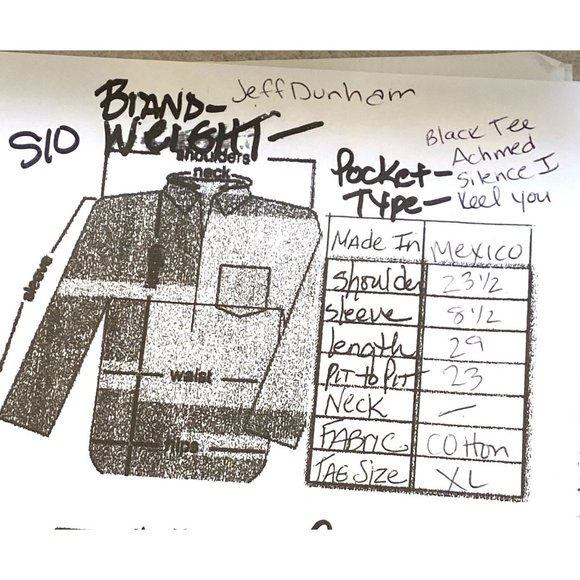 BRAND- Jeff Dunham
S10 WEIGHT-
shoulders
neck
sleeve
waist
hips
Pocket-
Type-
Black Tee
Achmed
Silence I
Keel you
Made In Mexico
Shoulder 23 1/2
Sleeve 8 1/2
length 29
Pit to Pit 23
Neck -
FABRIC Cotton
TAG Size XL